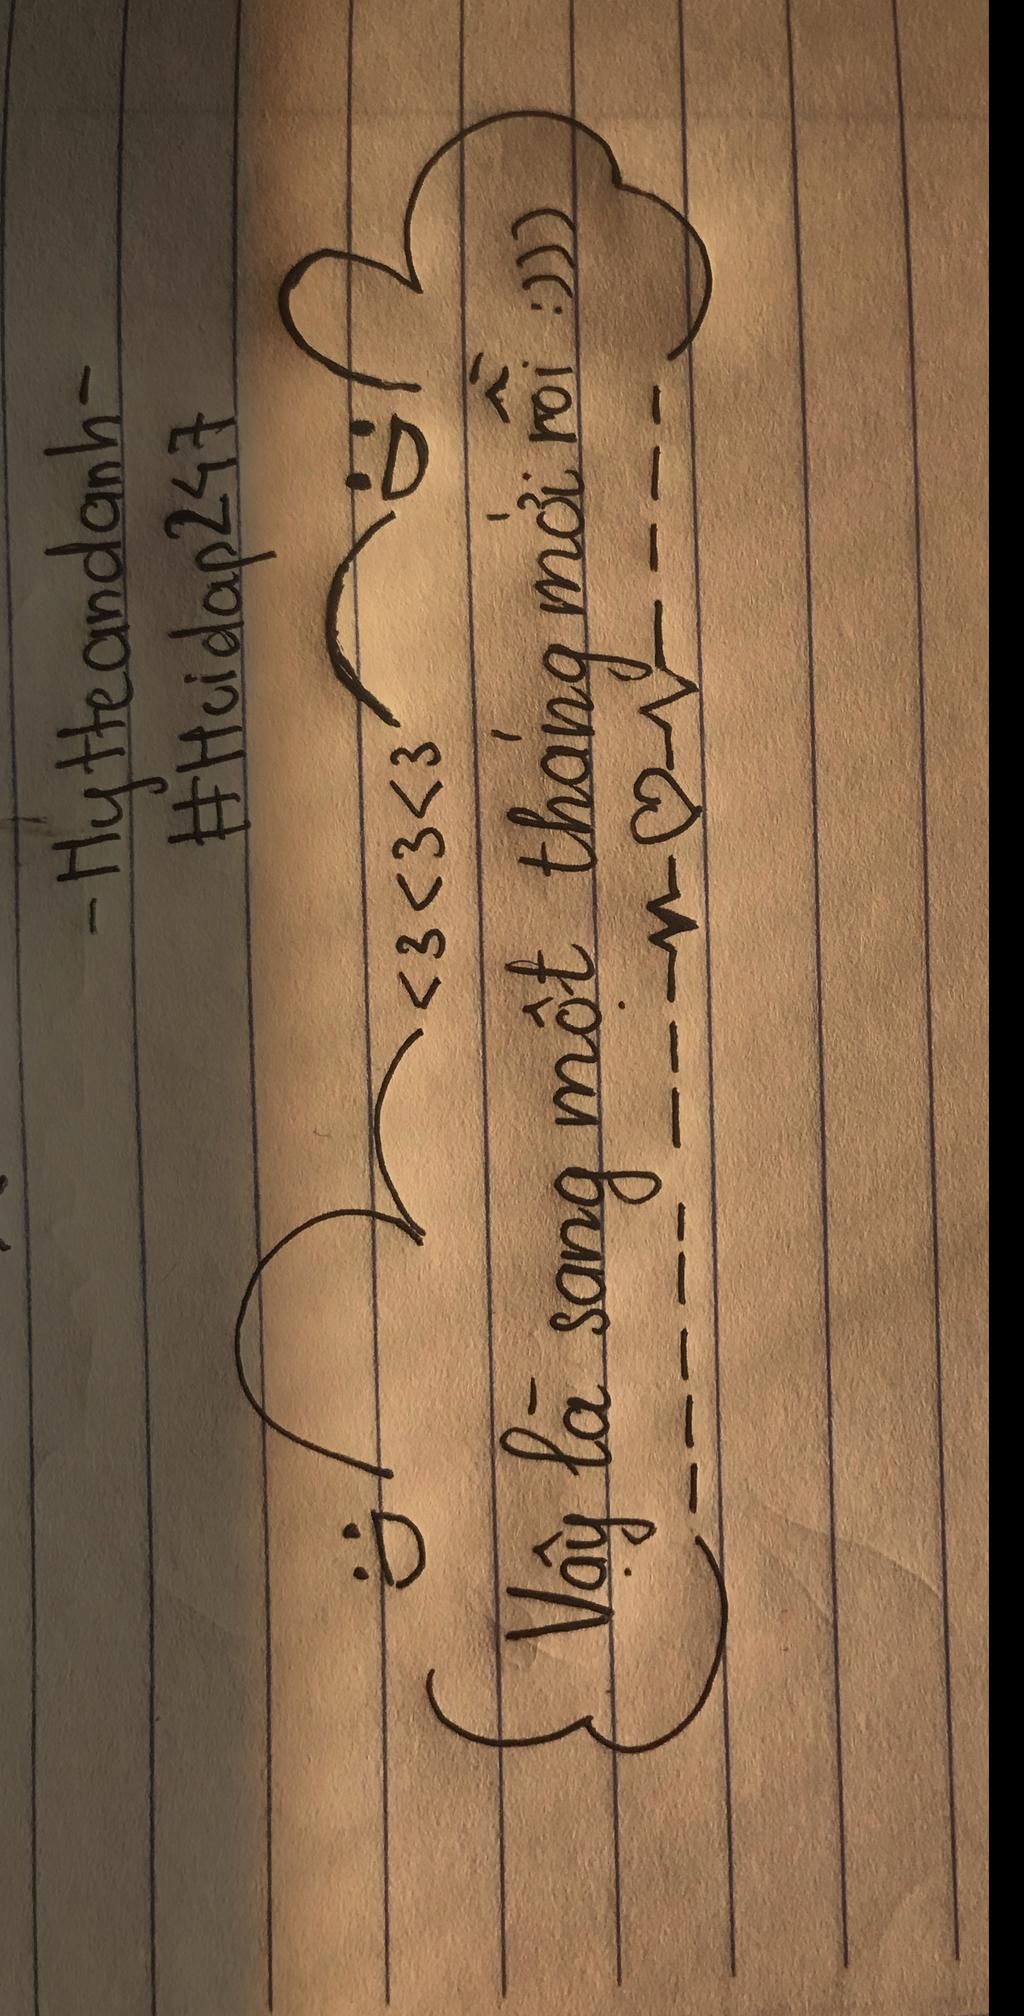 -Hytteandanh-
#Hoidap247
<3<3<3
Vậy là sang một tháng mới rồi :)))